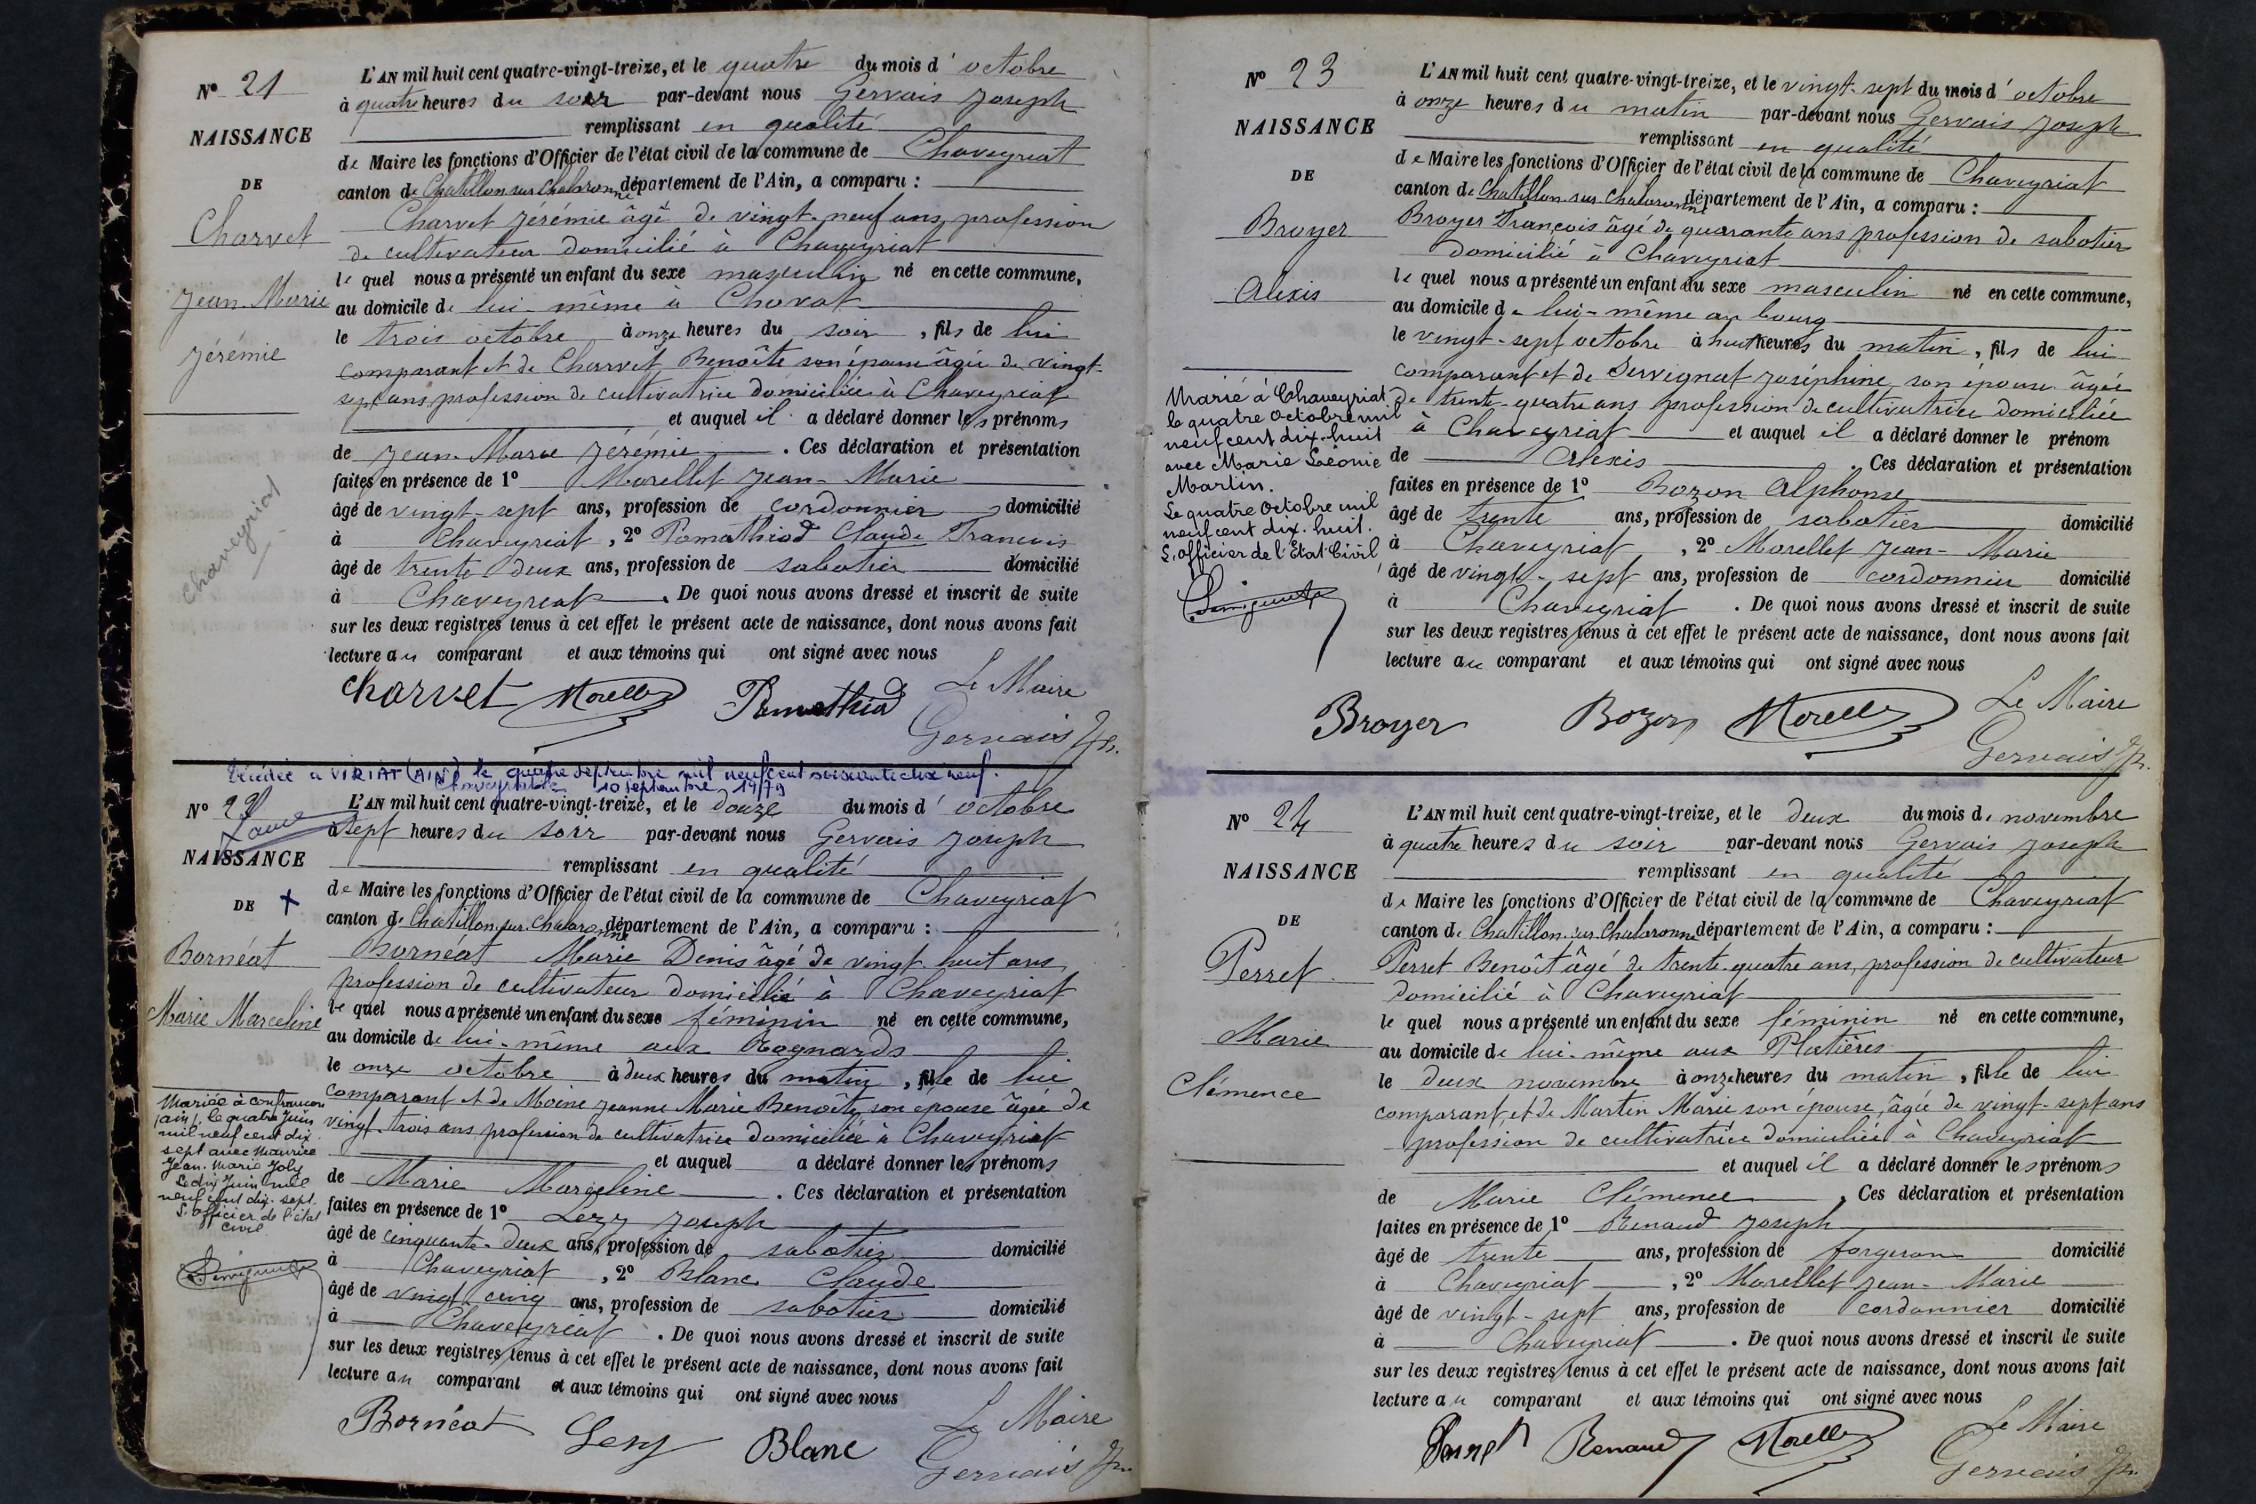 N° 21
NAISSANCE
DE
Charvet
Jean-Marie
Jérémie
Chaveyriat
L'AN mil huit cent quatre-vingt-treize, et le quatre du mois d'octobre
à quatre heures du soir par-devant nous Gervais Joseph
remplissant en qualité
de Maire les fonctions d'Officier de l'état civil de la commune de Chaveyriat
canton de Chatillon sur Chalaronne département de l'Ain, a comparu :
Charvet Jérémie âgé de vingt-neuf ans, profession
de cultivateur domicilié à Chaveyriat
lequel nous a présenté un enfant du sexe masculin né en cette commune,
au domicile de lui-même à Chavat
le trois octobre à onze heures du soir, fils de lui
comparant et de Charvet Benoîte son épouse âgée de vingt-
sept ans, profession de cultivatrice domiciliée à Chaveyriat
et auquel il a déclaré donner les prénoms
de Jean-Marie Jérémie. Ces déclaration et présentation
faites en présence de 1° Morellet Jean-Marie
âgé de vingt-sept ans, profession de cordonnier domicilié
à Chaveyriat, 2° Pomathiod Claude Francois
âgé de trente deux ans, profession de sabotier domicilié
à Chaveyriat. De quoi nous avons dressé et inscrit de suite
sur les deux registres tenus à cet effet le présent acte de naissance, dont nous avons fait
lecture au comparant et aux témoins qui ont signé avec nous
Le Maire
Charvet Morellet Pomathiod Gervais Jh.
Décédée à VIRIAT (AIN) le quatre septembre mil neuf cent soixante dix neuf.
Chaveyriat le 10 septembre 1979
N° 22
NAISSANCE
DE
Bornéat
Marie Marceline
Mariée à Confrançon
(ain), le quatre Juin
mil neuf cent dix
sept avec Maurice
Jean-Marie Joly
Le dix Juin mil
neuf cent dix-sept.
L'officier de l'état
civil
L'AN mil huit cent quatre-vingt-treize, et le douze du mois d'octobre
à sept heures du soir par-devant nous Gervais Joseph
remplissant en qualité
de Maire les fonctions d'Officier de l'état civil de la commune de Chaveyriat
canton de Chatillon sur Chalaronne département de l'Ain, a comparu :
Bornéat Marie Denis âgé de vingt-huit ans
profession de cultivateur domicilié à Chaveyriat
lequel nous a présenté un enfant du sexe féminin né en cette commune,
au domicile de lui-même aux Rognards
le onze octobre à deux heures du matin, fille de lui
comparant et de Moine Jeanne Marie Benoîte, son épouse âgée de
vingt-trois ans profession de cultivatrice domiciliée à Chaveyriat
et auquel a déclaré donner les prénoms
de Marie Marceline. Ces déclaration et présentation
faites en présence de 1° Lezy Joseph
âgé de cinquante-deux ans, profession de sabotier domicilié
à Chaveyriat, 2° Blanc Claude
âgé de vingt cinq ans, profession de sabotier domicilié
à Chaveyriat. De quoi nous avons dressé et inscrit de suite
sur les deux registres tenus à cet effet le présent acte de naissance, dont nous avons fait
lecture au comparant et aux témoins qui ont signé avec nous
Le Maire
Bornéat Lezy Blanc Gervais Jh.
N° 23
NAISSANCE
DE
Broyer
Alexis
Marié à Chaveyriat
le quatre Octobre mil
neuf cent dix-huit
avec Marie Léonie
Martin.
Le quatre Octobre mil
neuf cent dix-huit.
L'officier de l'Etat Civil,
L'AN mil huit cent quatre-vingt-treize, et le vingt-sept du mois d'octobre
à onze heures du matin par-devant nous Gervais Joseph
remplissant en qualité
de Maire les fonctions d'Officier de l'état civil de la commune de Chaveyriat
canton de Chatillon sur Chalaronne département de l'Ain, a comparu :
Broyer François âgé de quarante ans profession de sabotier
domicilié à Chaveyriat
lequel nous a présenté un enfant du sexe masculin né en cette commune,
au domicile de lui-même au bourg
le vingt-sept octobre à huit heures du matin, fils de lui
comparant et de Servignat Joséphine, son épouse âgée
de trente-quatre ans profession de cultivatrice domiciliée
à Chaveyriat et auquel il a déclaré donner le prénom
de Alexis. Ces déclaration et présentation
faites en présence de 1° Bozon Alphonse
âgé de trente ans, profession de sabotier domicilié
à Chaveyriat, 2° Morellet Jean-Marie
âgé de vingt-sept ans, profession de cordonnier domicilié
à Chaveyriat. De quoi nous avons dressé et inscrit de suite
sur les deux registres tenus à cet effet le présent acte de naissance, dont nous avons fait
lecture au comparant et aux témoins qui ont signé avec nous
Le Maire
Broyer Bozon Morellet Gervais Jh.
N° 24
NAISSANCE
DE
Perret
Marie
Clémence
L'AN mil huit cent quatre-vingt-treize, et le deux du mois de novembre
à quatre heures du soir par-devant nous Gervais Joseph
remplissant en qualité
de Maire les fonctions d'Officier de l'état civil de la commune de Chaveyriat
canton de Chatillon sur Chalaronne département de l'Ain, a comparu :
Perret Benoît âgé de trente-quatre ans, profession de cultivateur
domicilié à Chaveyriat
lequel nous a présenté un enfant du sexe féminin né en cette commune,
au domicile de lui-même aux Platières
le deux novembre à onze heures du matin, fille de lui
comparant, et de Martin Marie son épouse, âgée de vingt-sept ans
profession de cultivatrice domiciliée à Chaveyriat
et auquel il a déclaré donner les prénoms
de Marie Clémence. Ces déclaration et présentation
faites en présence de 1° Renaud Joseph
âgé de trente ans, profession de forgeron domicilié
à Chaveyriat, 2° Morellet Jean-Marie
âgé de vingt-sept ans, profession de cordonnier domicilié
à Chaveyriat. De quoi nous avons dressé et inscrit de suite
sur les deux registres tenus à cet effet le présent acte de naissance, dont nous avons fait
lecture au comparant et aux témoins qui ont signé avec nous
Le Maire
Perret Renaud Morellet Gervais Jh.